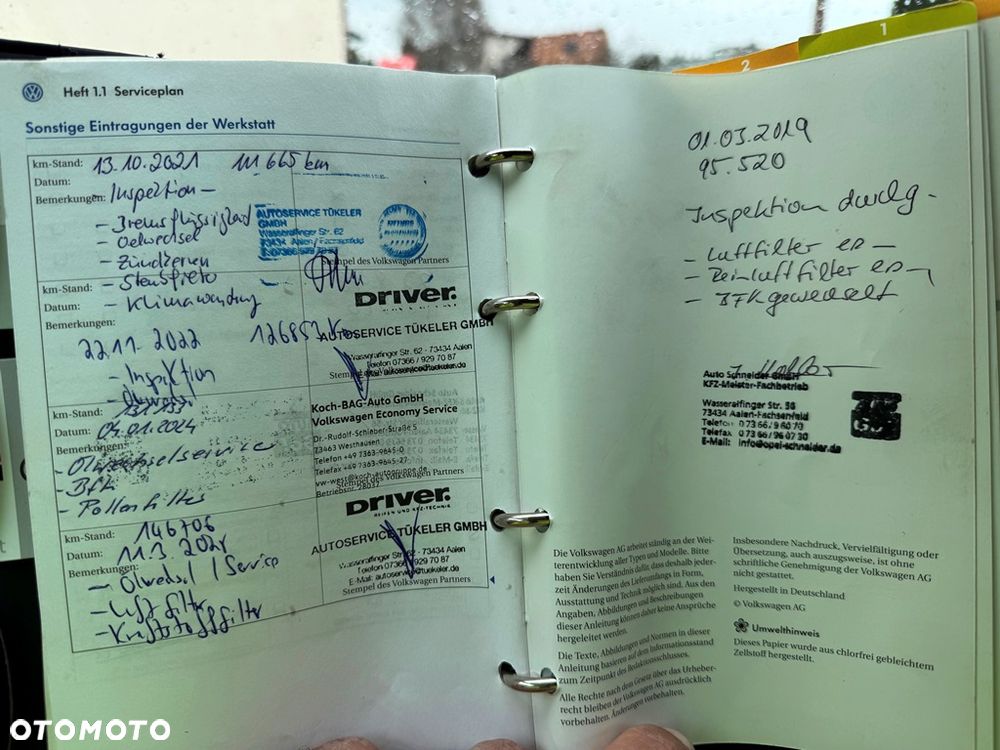 Heft 1.1 Serviceplan
Sonstige Eintragungen der Werkstatt
km-Stand: 13.10.2021 111 665 km
Datum:
Bemerkungen: - Inspektion -
- Bremsflüssigkeit
- Oelwechsel
- Zündkerzen
- Klimawartung
AUTOSERVICE TÜKELER
GMBH
Wasseralfinger Str. 62
73434 Aalen-Fachsenfeld
Stempel des Volkswagen Partners
km-Stand:
Datum:
Bemerkungen:
22.11.2022
- Inspektion
- Ölwechsel
DRIVER.
AUTOSERVICE TÜKELER GMBH
Wasseralfinger Str. 62 - 73434 Aalen
Telefon 07366 / 929 70 87
km-Stand:
Datum: 04.01.2024
Bemerkungen:
- Ölwechselservice
- Bfk
- Pollenfilter
Koch-BAG-Auto GmbH
Volkswagen Economy Service
Dr.-Rudolf-Schieber-Straße 5
73463 Westhausen
Telefon +49 7363-9645-0
Telefax +49 7363-9645-27
vw-west@koch-autogruppe.de
Betriebsnr. 28037
Stempel des Volkswagen Partners
km-Stand: 146706
Datum: 11.3.
Bemerkungen:
- Ölwechsel / Service
- Luftfilter
- Kraftstofffilter
DRIVER.
REIFEN UND KFZ-TECHNIK
AUTOSERVICE TÜKELER GMBH
Wasseralfinger Str. 62 - 73434 Aalen
Telefon 07366 / 929 70 87
E-Mail: autoservice@tuekeler.de
Stempel des Volkswagen Partners
2
1
01.03.2019
95.520
Inspektion durchg.
- Luftfilter en -
- Reinluftfilter en -
- BFK gewechselt
Auto Schneider GmbH
KFZ-Meister-Fachbetrieb
Wasseralfinger Str. 58
73434 Aalen-Fachsenfeld
Telefon 0 73 66 / 96 07 0
Telefax 0 73 66 / 96 07 30
E-Mail: info@opel-schneider.de
Die Volkswagen AG arbeitet ständig an der Wei-
terentwicklung aller Typen und Modelle. Bitte
haben Sie Verständnis dafür, dass deshalb jeder-
zeit Änderungen des Lieferumfangs in Form,
Ausstattung und Technik möglich sind. Aus den
Angaben, Abbildungen und Beschreibungen
dieser Anleitung können daher keine Ansprüche
hergeleitet werden.
Die Texte, Abbildungen und Normen in dieser
Anleitung basieren auf dem Informationsstand
zum Zeitpunkt des Redaktionsschlusses.
Alle Rechte nach dem Gesetz über das Urheber-
recht bleiben der Volkswagen AG ausdrücklich
vorbehalten. Änderungen vorbehalten.
Insbesondere Nachdruck, Vervielfältigung oder
Übersetzung, auch auszugsweise, ist ohne
schriftliche Genehmigung der Volkswagen AG
nicht gestattet.
Hergestellt in Deutschland
© Volkswagen AG
Umwelthinweis
Dieses Papier wurde aus chlorfrei gebleichtem
Zellstoff hergestellt.
OTOMOTO